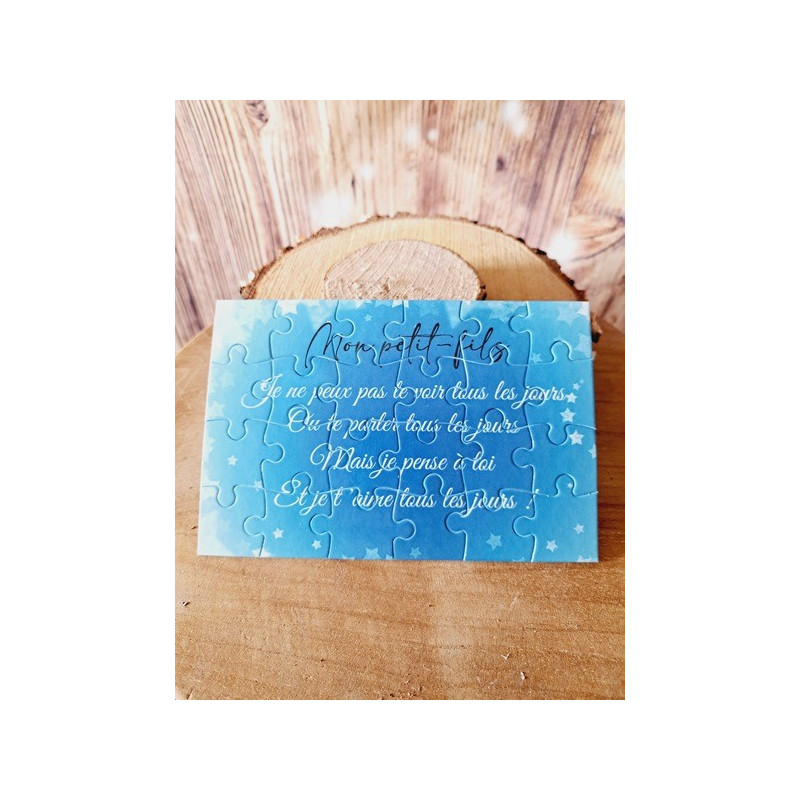 Mon petit-fils
Je ne peux pas te voir tous les jours
Ou te parler tous les jours
Mais je pense à toi
Et je t'aime tous les jours !